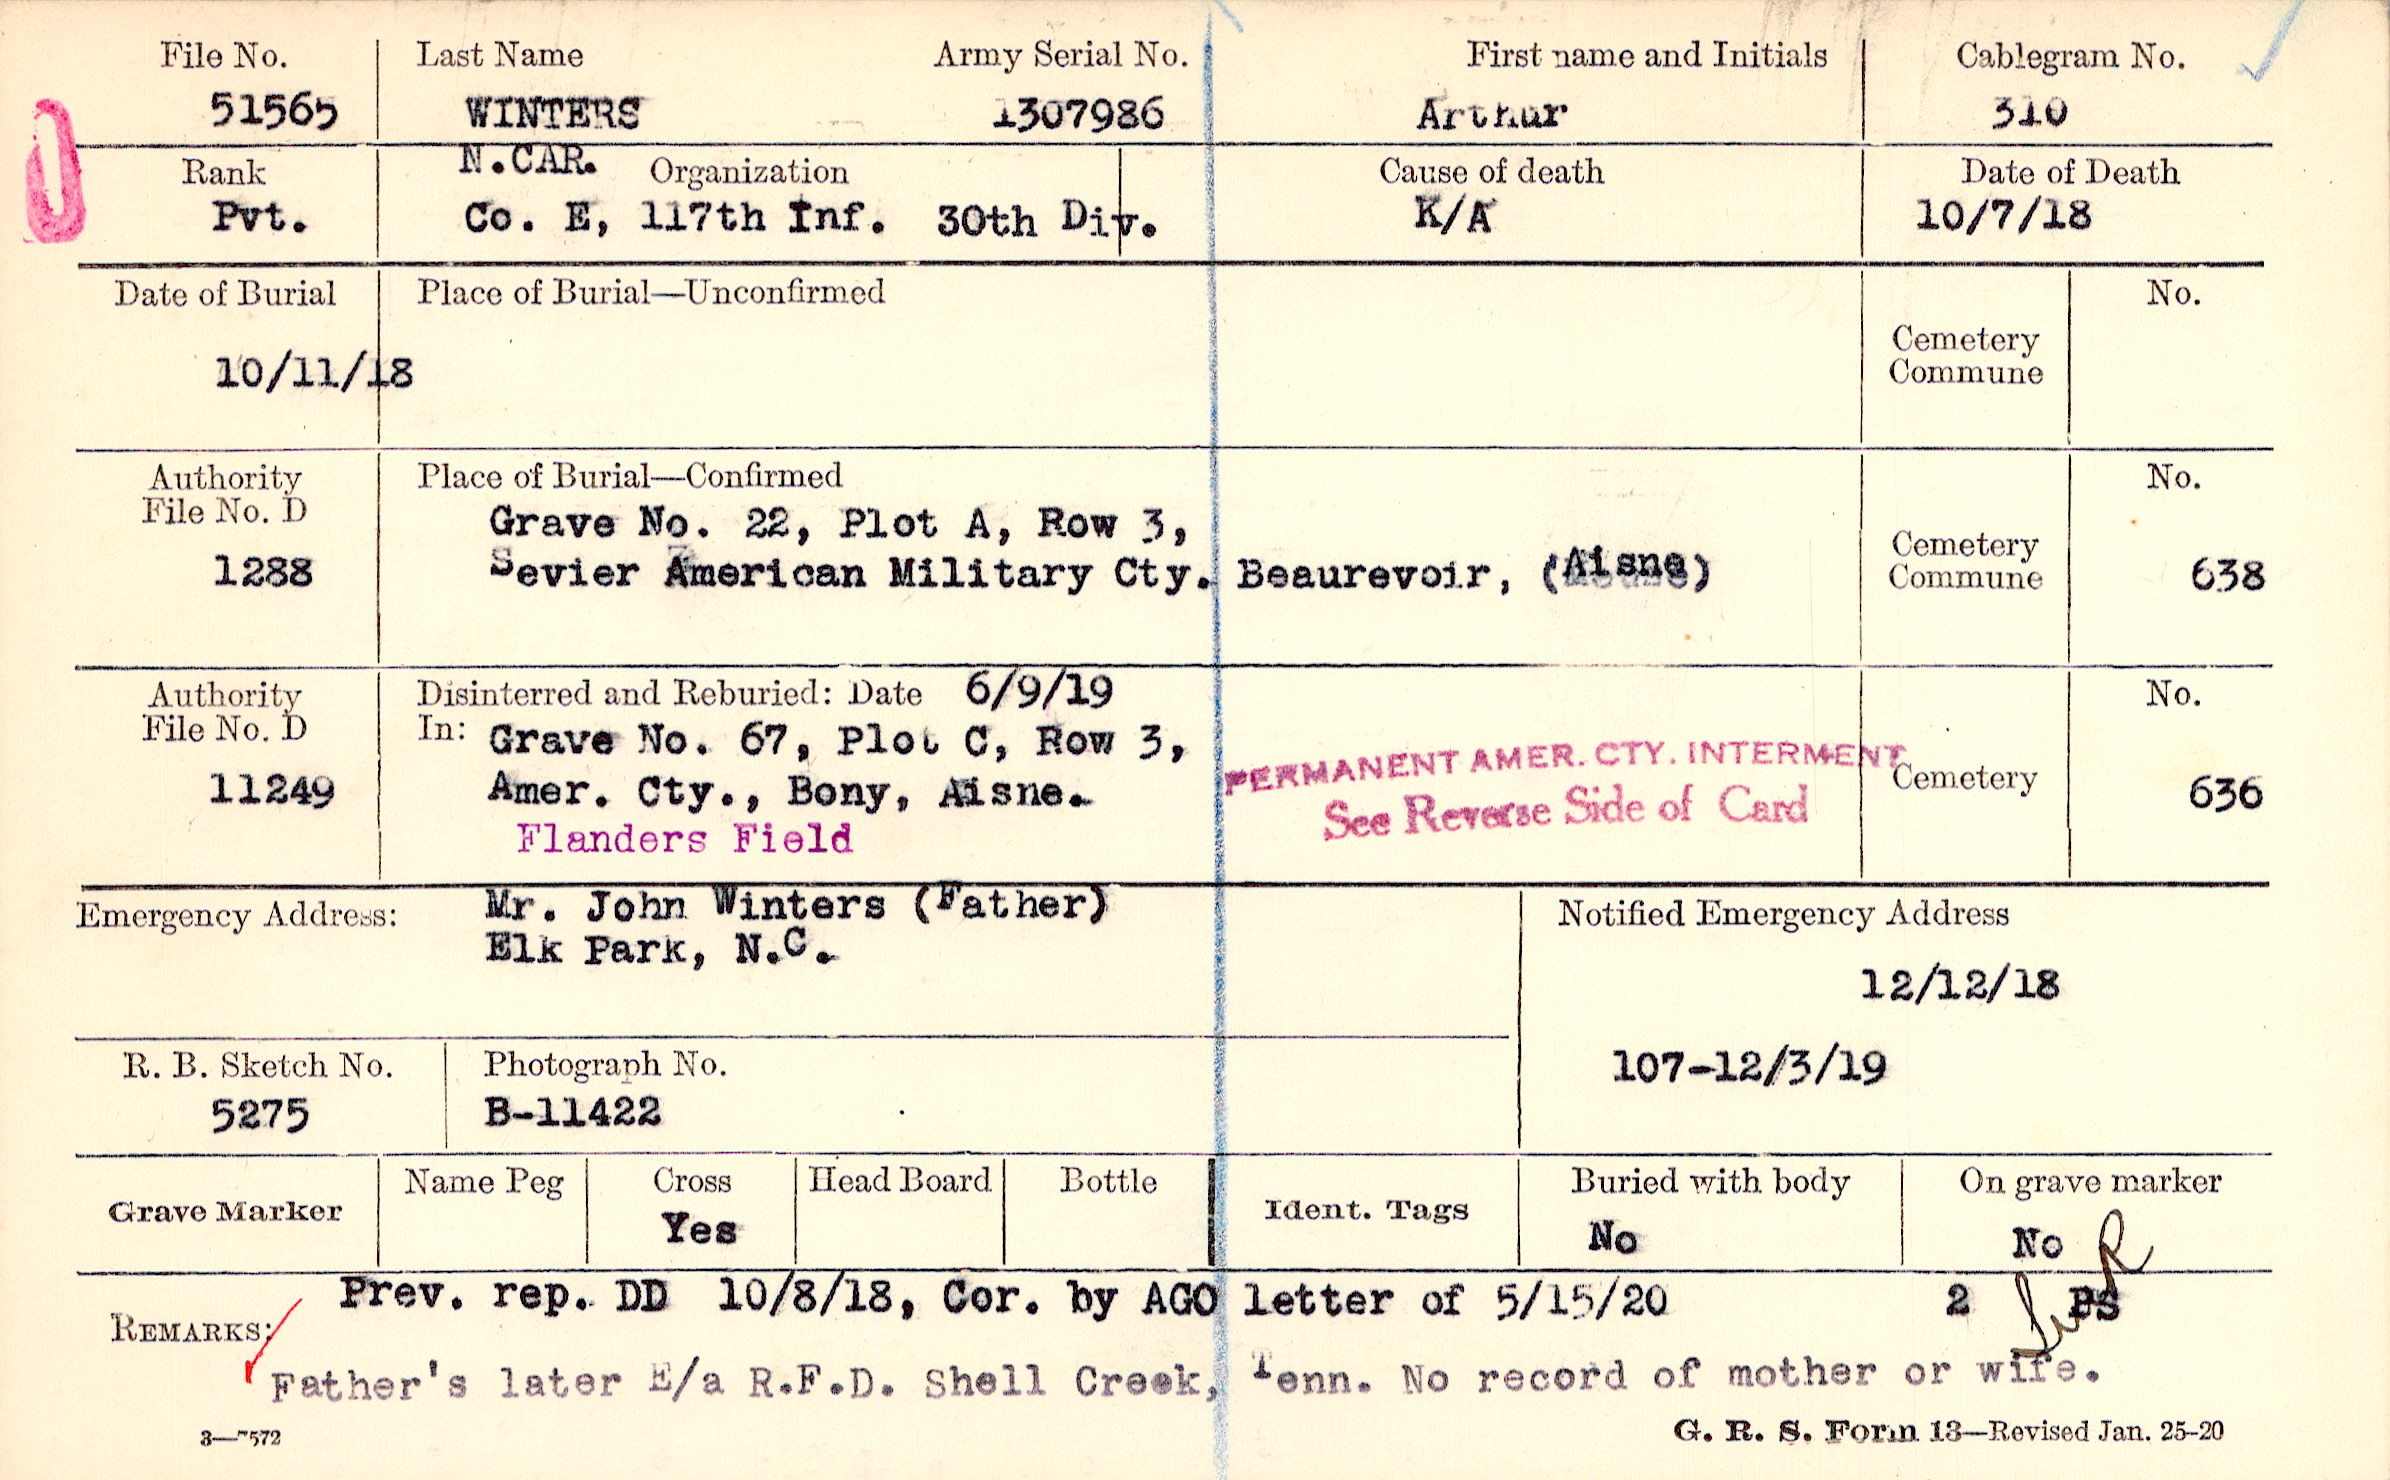 File No. Last Name Army Serial No. First name and Initials Cablegram No.
51565 WINTERS 1307986 Arthur 310
Rank N.CAR. Organization Cause of death Date of Death
Pvt. Co. E, 117th Inf. 30th Div. K/A 10/7/18
Date of Burial Place of Burial—Unconfirmed No.
Cemetery
Commune
10/11/18
Authority Place of Burial—Confirmed No.
File No. D Grave No. 22, Plot A, Row 3,
Cemetery
1288 Sevier American Military Cty. Beaurevoir, (Aisne) Commune 638
Authority Disinterred and Reburied: Date 6/9/19 No.
File No. D In: Grave No. 67, Plot C, Row 3,
PERMANENT AMER. CTY. INTERMENT
11249 Amer. Cty., Bony, Aisne. Cemetery 636
See Reverse Side of Card
Flanders Field
Emergency Address: Mr. John Winters (Father) Notified Emergency Address
Elk Park, N.C.
12/12/18
R. B. Sketch No. Photograph No. 107-12/3/19
5275 B-11422
Grave Marker Name Peg Cross Head Board Bottle Ident. Tags Buried with body On grave marker
Yes No No
Prev. rep. DD 10/8/18, Cor. by AGO letter of 5/15/20 2 PS
REMARKS:
Father's later E/a R.F.D. Shell Creek, Tenn. No record of mother or wife.
3—7572 G. R. S. Form 13—Revised Jan. 25-20